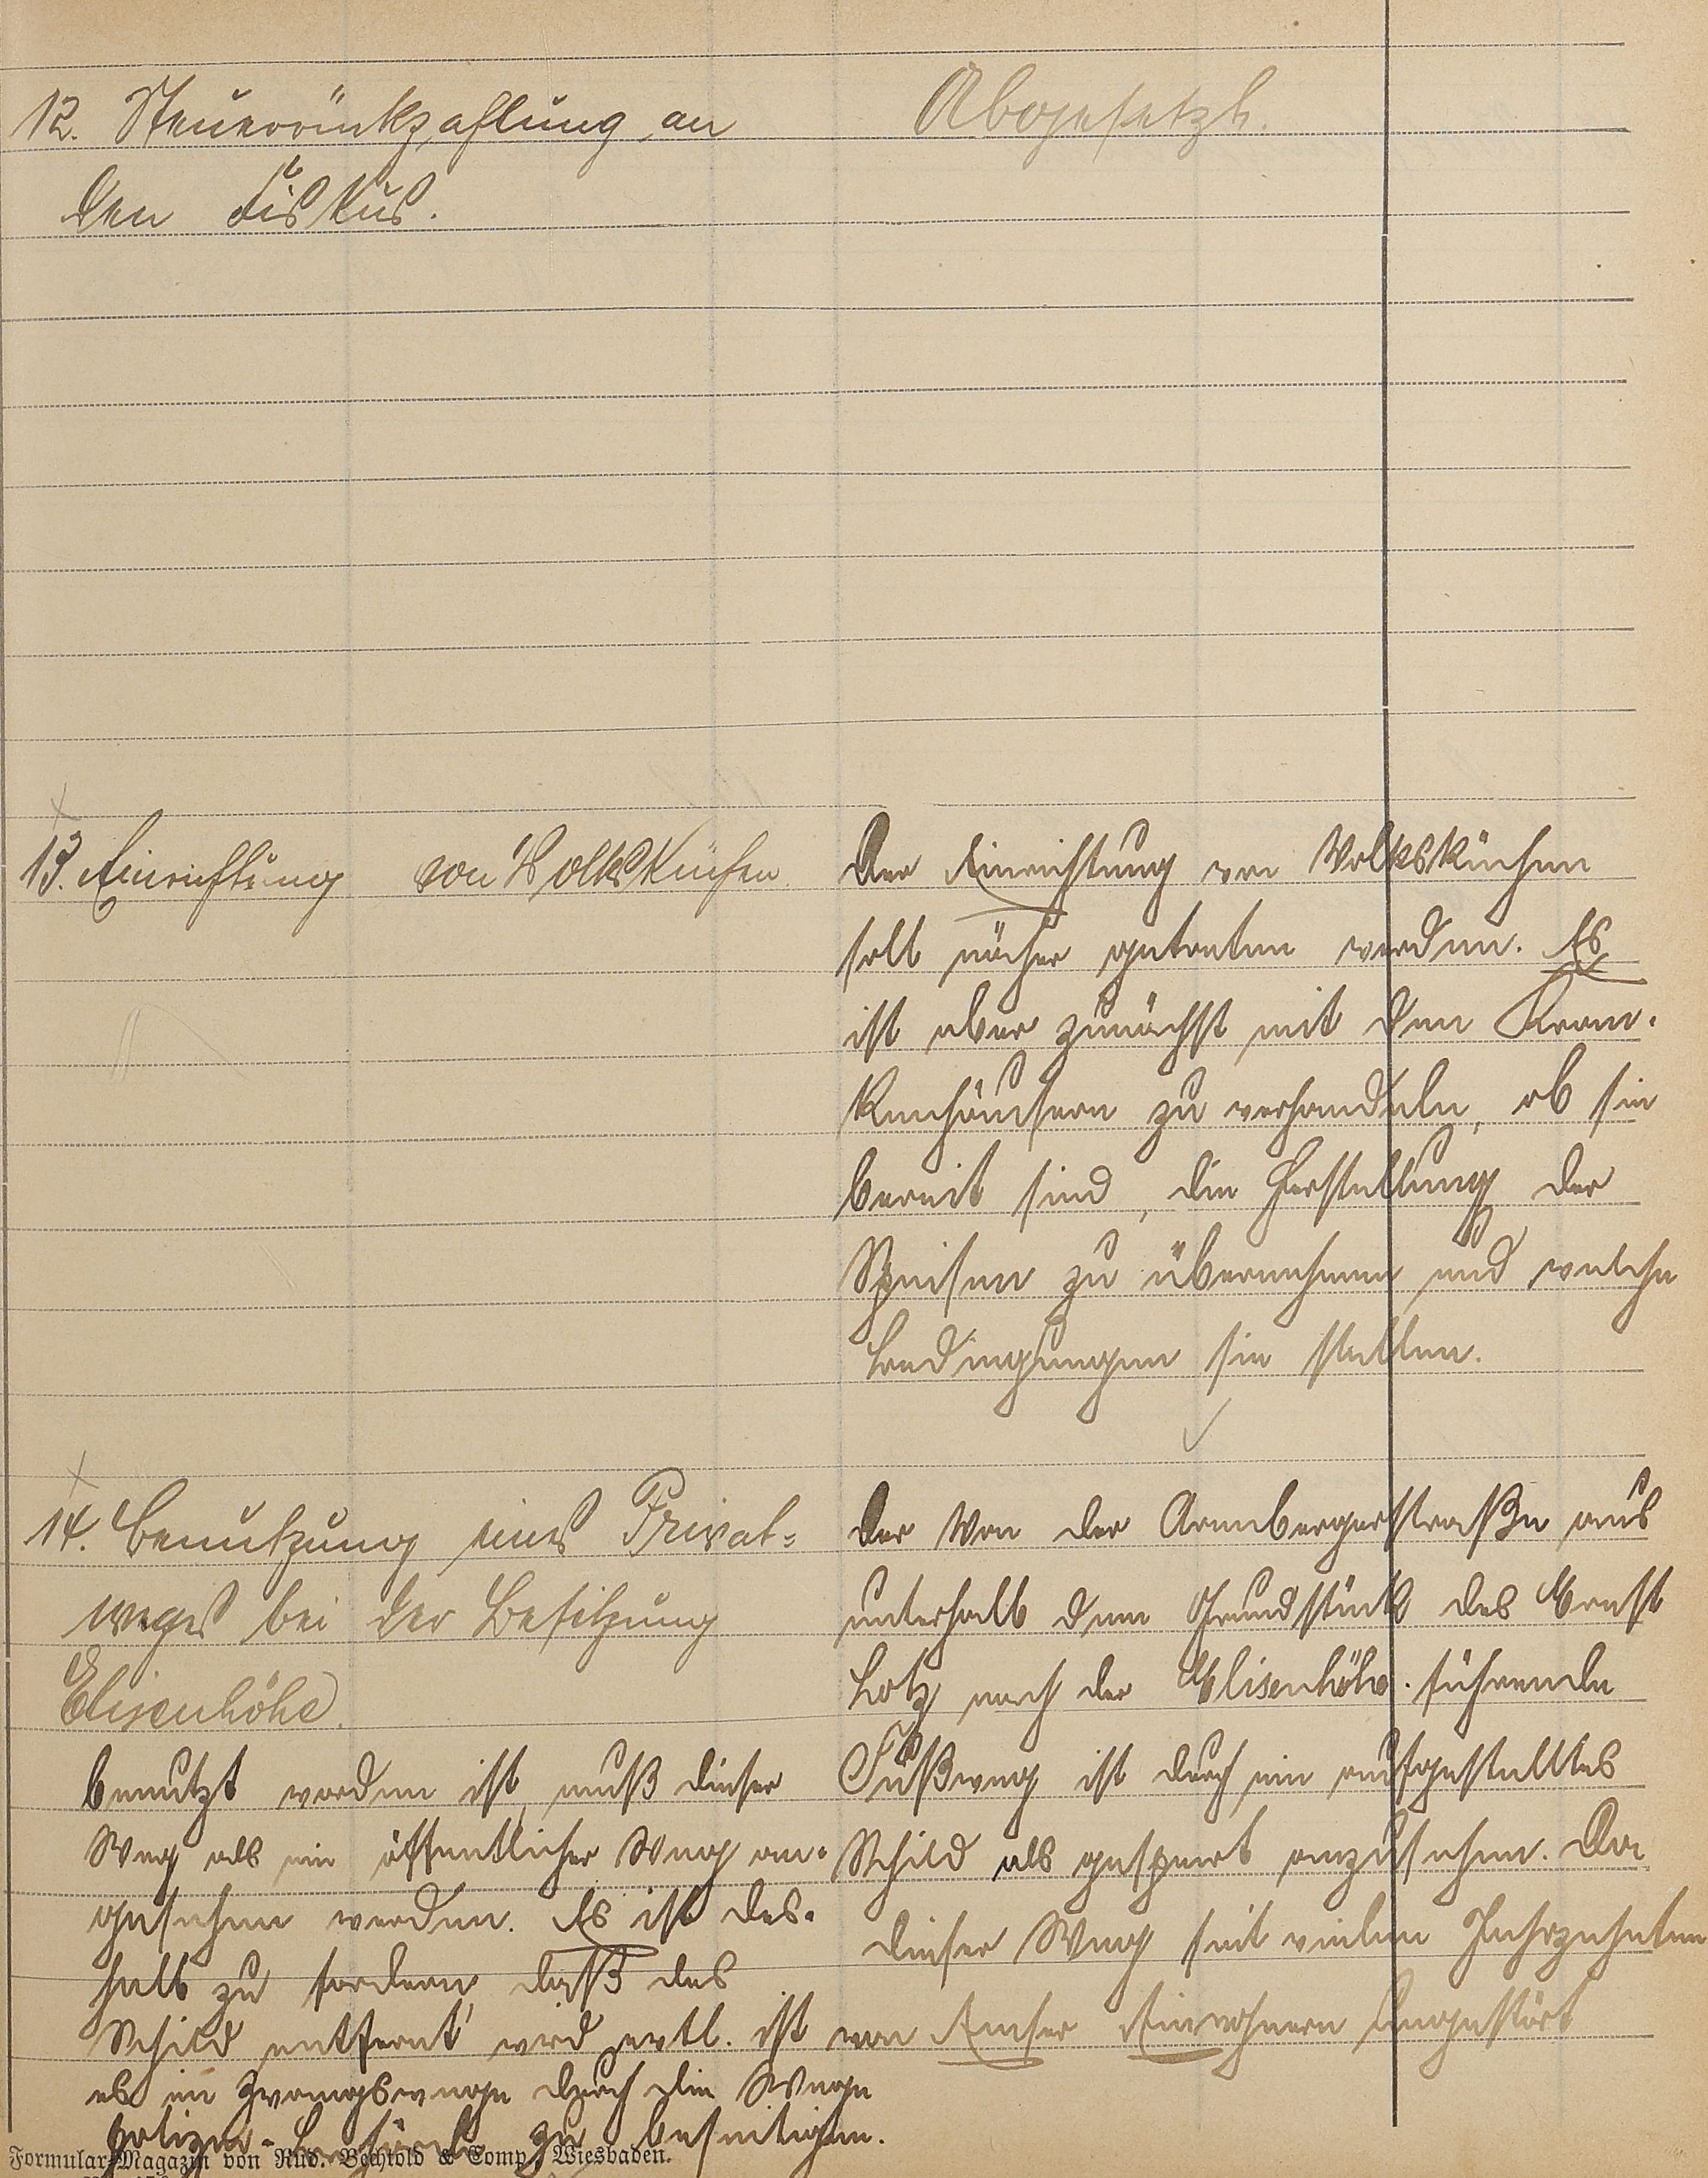 12. Steuerrückzahlung an
den Fiskus.
Abgesetzt.
13. Einrichtung von Volksküchen
Der Einrichtung von Volksküchen
soll näher getreten werden. Es
ist aber zunächst mit den Kran-
kenhäusern zu verhandeln, ob sie
bereit sind, die Herstellung der
Speisen zu übernehmen und welche
Bedingungen sie stellen.
14. Benutzung eines Privat-
weges bei der Besitzung
Elisenhöhe.
Der von der Arenbergerstraße aus
unterhalb dem Grundstück des Ernst
Lotz nach der Elisenhöhe führende
Fußweg ist durch ein aufgestelltes
Schild als gesperrt anzusehen. Da
dieser Weg seit vielen Jahrzehnten
von Emser Einwohnern ungestört
benutzt worden ist, muß dieser
Weg als ein öffentlicher Weg an-
gesehen werden. Es ist des-
halb zu fordern, daß das
Schild entfernt wird, evtl. ist
es im Zwangswege durch die Wege
polizei-Behörde zu beseitigen.
Formular-Magazin von Rud. Bechtold & Comp., Wiesbaden.